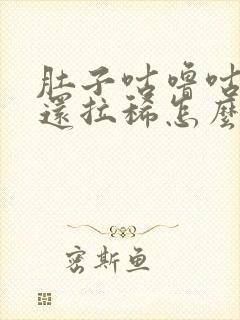 肚子咕噜咕
還拉稀怎麼
密斯鱼